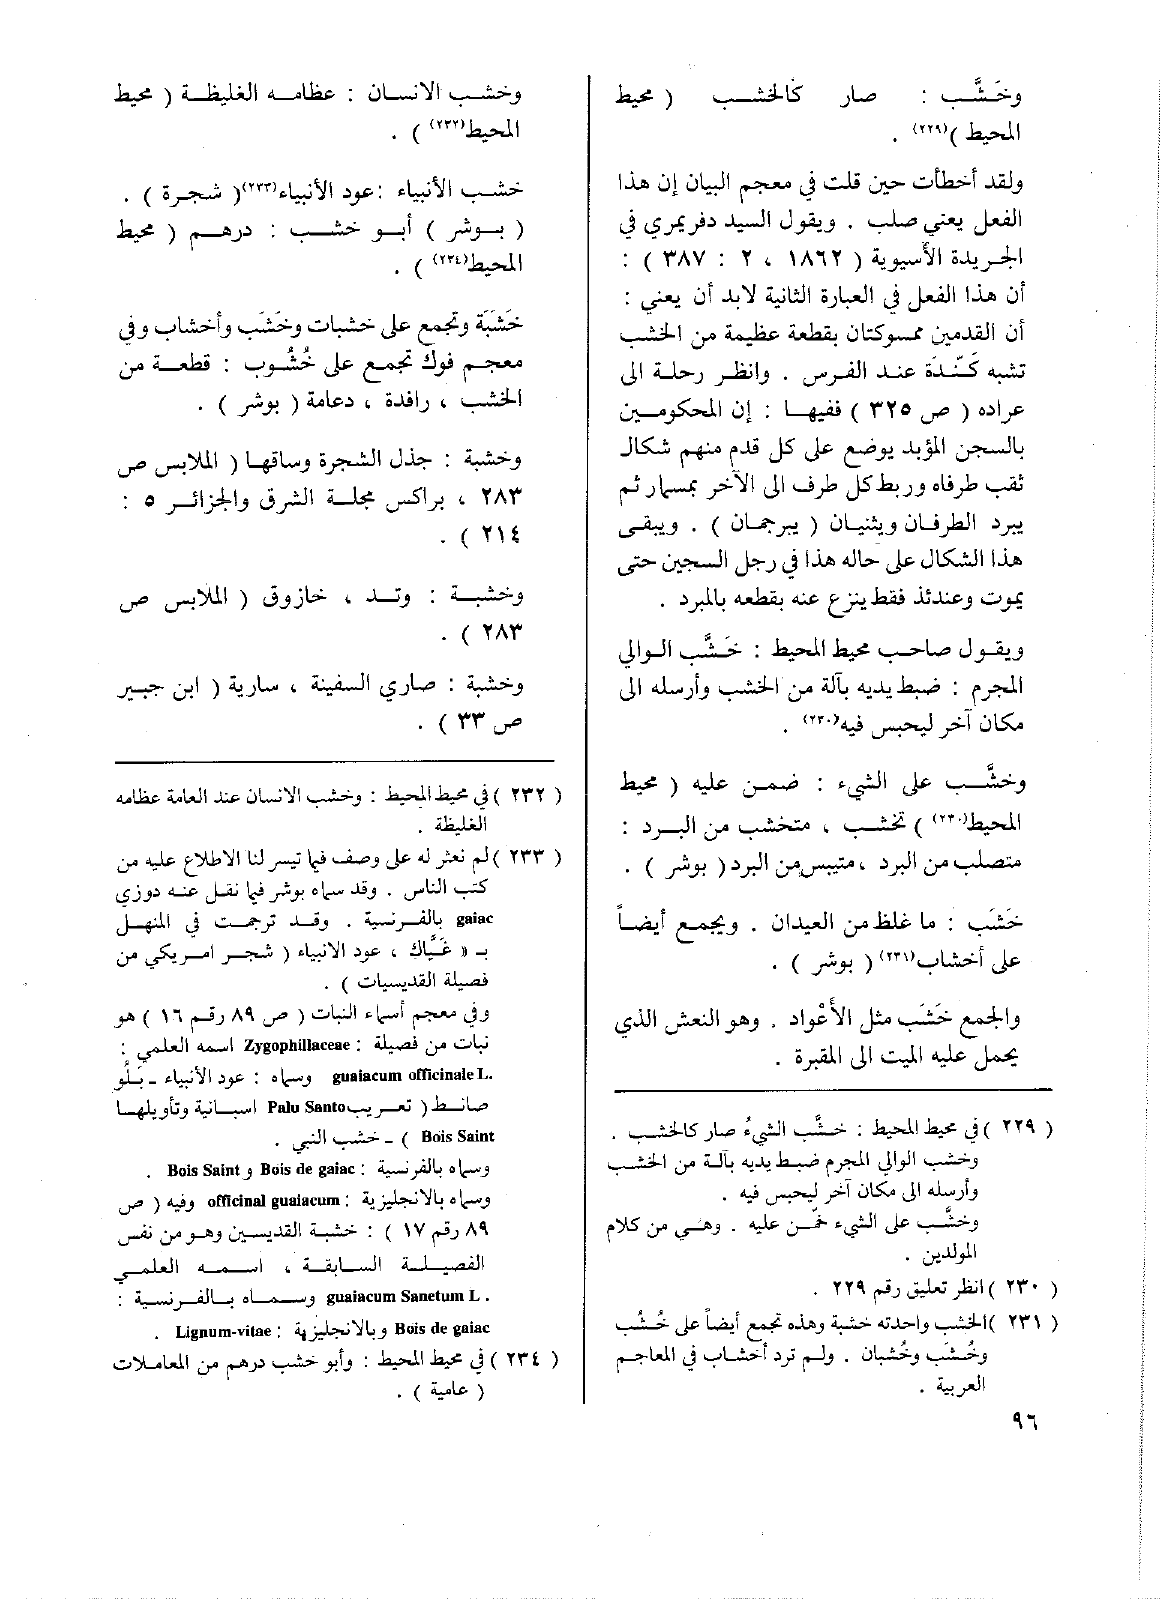 وخَشَّب : صار كالخشب ( محيط
المحيط )(٢٢٩) .
ولقد أخطأت حين قلت في معجم البيان إن هذا
الفعل يعني صلب . ويقول السيد دفريمري في
الجريدة الأسيوية ( ١٨٦٢ ، ٢ : ٣٨٧ ) :
أن هذا الفعل في العبارة الثانية لابد أن يعني :
أن القدمين ممسوكتان بقطعة عظيمة من الخشب
تشبه كَنْدَة عند الفرس . وانظر رحلة الى
عراده ( ص ٣٢٥ ) ففيها : إن المحكومين
بالسجن المؤبد يوضع على كل قدم منهم شكال
ثقب طرفاه وربط كل طرف الى الآخر بمسمار ثم
يبرد الطرفان ويثنيان ( يبرجمان ) . ويبقى
هذا الشكال على حاله هذا في رجل السجين حتى
يموت وعندئذ فقط ينزع عنه بقطعه بالمبرد .
ويقول صاحب محيط المحيط : خَشَّب الوالي
المجرم : ضبط يديه بآلة من الخشب وأرسله الى
مكان آخر ليحبس فيه(٢٣٠) .
وخشَّب على الشيء : ضمن عليه ( محيط
المحيط(٢٣٠) ) تخشب ، متخشب من البرد :
متصلب من البرد ، متيبس من البرد ( بوشر ) .
خَشَب : ما غلظ من العيدان . ويجمع أيضاً
على أخشاب(٢٣١) ( بوشر ) .
والجمع خَشَب مثل الأعْواد . وهو النعش الذي
يحمل عليه الميت الى المقبرة .
( ٢٢٩ ) في محيط المحيط : خشَّب الشيءُ صار كالخشب .
وخشب الوالي المجرم ضبط يديه بآلة من الخشب
وأرسله الى مكان آخر ليحبس فيه .
وخشَّب على الشيء خمّن عليه . وهي من كلام
المولدين .
( ٢٣٠ ) انظر تعليق رقم ٢٢٩ .
( ٢٣١ ) الخشب واحدته خشبة وهذه تجمع أيضاً على خُشُب
وخُشْب وخُشبان . ولم ترد أخشاب في المعاجم
العربية .
٩٦
وخشب الانسان : عظامه الغليظة ( محيط
المحيط(٢٣٢) ) .
خشب الأنبياء : عود الأنبياء(٢٣٣) ( شجرة ) .
( بوشر ) أبو خشب : درهم ( محيط
المحيط(٢٣٤) ) .
خَشَبَة وتجمع على خشبات وخَشَب وأخشاب وفي
معجم فوك تجمع على خُشُوب : قطعة من
الخشب ، رافدة ، دعامة ( بوشر ) .
وخشبة : جذل الشجرة وساقها ( الملابس ص
٢٨٣ ، براكس مجلة الشرق والجزائر ٥ :
٢١٤ ) .
وخشبة : وتد ، خازوق ( الملابس ص
٢٨٣ ) .
وخشبة : صاري السفينة ، سارية ( ابن جبير
ص ٣٣ ) .
( ٢٣٢ ) في محيط المحيط : وخشب الانسان عند العامة عظامه
الغليظة .
( ٢٣٣ ) لم نعثر له على وصف فيما تيسر لنا الاطلاع عليه من
كتب الناس . وقد سماه بوشر فيما نقل عنه دوزي
gaiac بالفرنسية . وقد ترجمت في المنهل
بـ « غَيَّاك ، عود الانبياء ( شجر امريكي من
فصيلة القديسيات ) .
وفي معجم أسماء النبات ( ص ٨٩ رقم ١٦ ) هو
نبات من فصيلة : Zygophillaceae اسمه العلمي :
guaiacum officinale L. وسماه : عود الأنبياء ـ بَلُّو
صانط ( تعريب Palu Santo اسبانية وتأويلها
Bois Saint ) ـ خشب النبي .
وسماه بالفرنسية : Bois de gaiac و Bois Saint .
وسماه بالانجليزية : officinal guaiacum وفيه ( ص
٨٩ رقم ١٧ ) : خشبة القديسين وهو من نفس
الفصيلة السابقة ، اسمه العلمي
guaiacum Sanetum L . وسماه بالفرنسية :
Bois de gaiac وبالانجليزية : Lignum-vitae .
( ٢٣٤ ) في محيط المحيط : وأبو خشب درهم من المعاملات
( عامية ) .